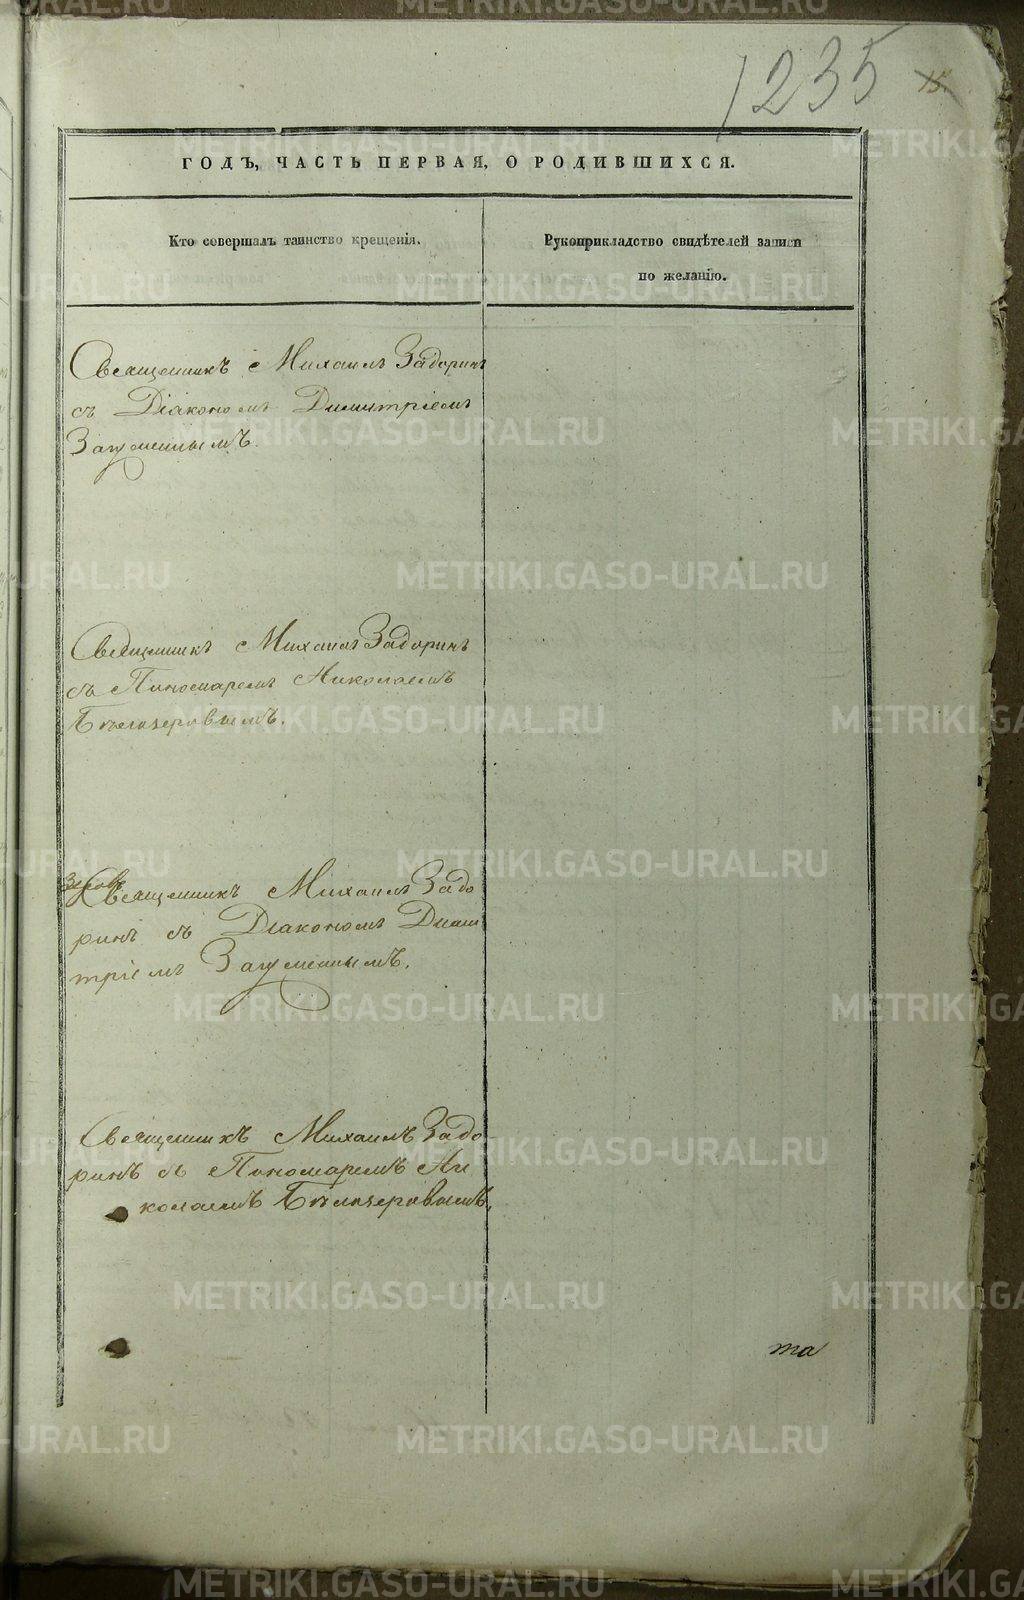 1235
15
ГОДЪ, ЧАСТЬ ПЕРВАЯ, О РОДИВШИХСЯ.
Кто совершалъ таинство крещенія.
Рукоприкладство свидѣтелей записи
по желанію.
Священникъ Михаилъ Задоринъ
съ Діакономъ Димитріемъ
Загуменнымъ.
Священникъ Михаилъ Задоринъ
съ Пономаремъ Николаемъ
Бѣлозеровымъ.
Священникъ Михаилъ Задо
ринъ съ Діакономъ Дими
тріемъ Загуменнымъ.
Священникъ Михаилъ Задо
ринъ съ Пономаремъ Ни
колаемъ Бѣлозеровымъ.
та
METRIKI.GASO-URAL.RU